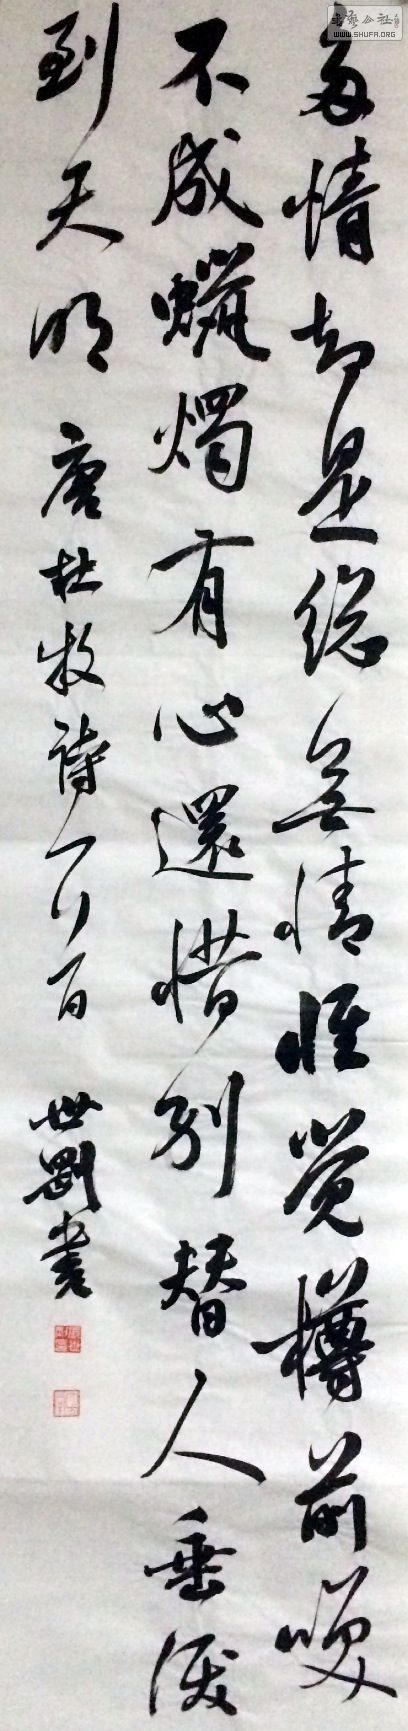 多情却是總無情惟覺樽前唤
不成蠟燭有心還惜别替人垂淚
到天明 唐杜牧詩一首 世剛書
書藝公社
WWW.SHUFA.ORG